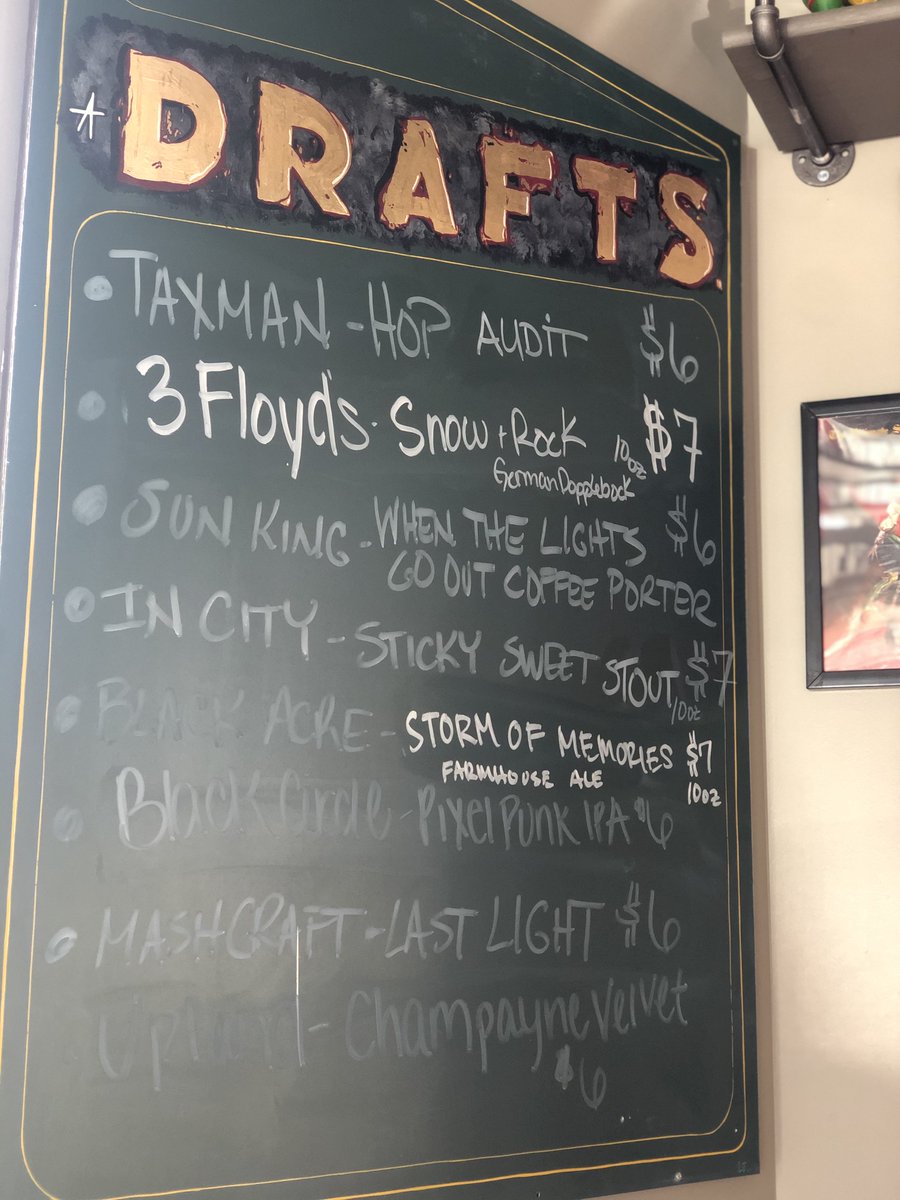 DRAFTS
• TAXMAN - HOP AUDIT $6
• 3 Floyd's - Snow + Rock 10oz $7
German Dopplebock
• SUN KING - WHEN THE LIGHTS $6
GO OUT COFFEE PORTER
• IN CITY - STICKY SWEET STOUT $7
10oz
• BLACK ACRE - STORM OF MEMORIES $7
FARMHOUSE ALE 10oz
• Black Circle - Pixel Punk IPA $6
• MASHCRAFT - LAST LIGHT $6
Upland - Champayne Velvet
$6